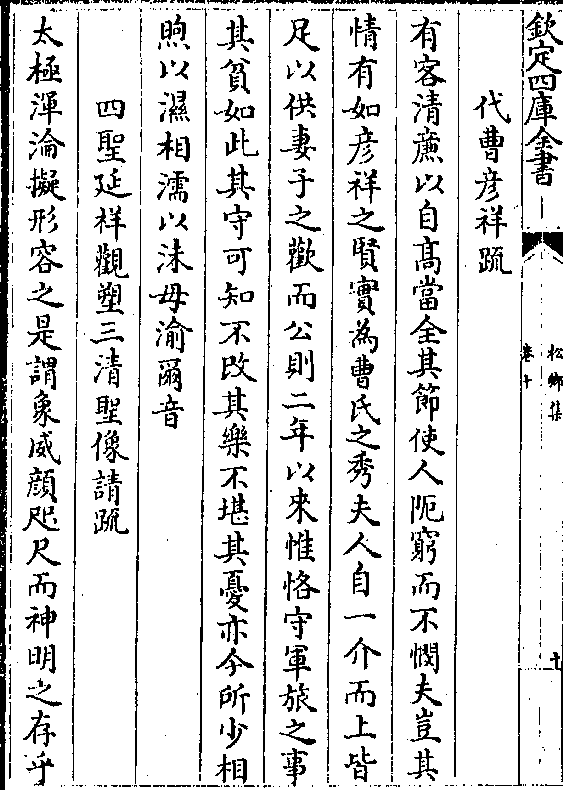 欽定四庫全書
松鄉集
卷十
十
代曹彦祥䟽
有客清亷以自髙當全其節使人阨窮而不憫夫豈其
情有如彦祥之賢實為曹氏之秀夫人自一介而上皆
足以供妻子之歡而公則二年以來惟恪守軍旅之事
其貧如此其守可知不改其樂不堪其憂亦今所少相
煦以濕相濡以沫毋渝爾音
四聖延祥觀塑三清聖像請䟽
太極渾淪擬形容之是謂象威顔咫尺而神明之存乎